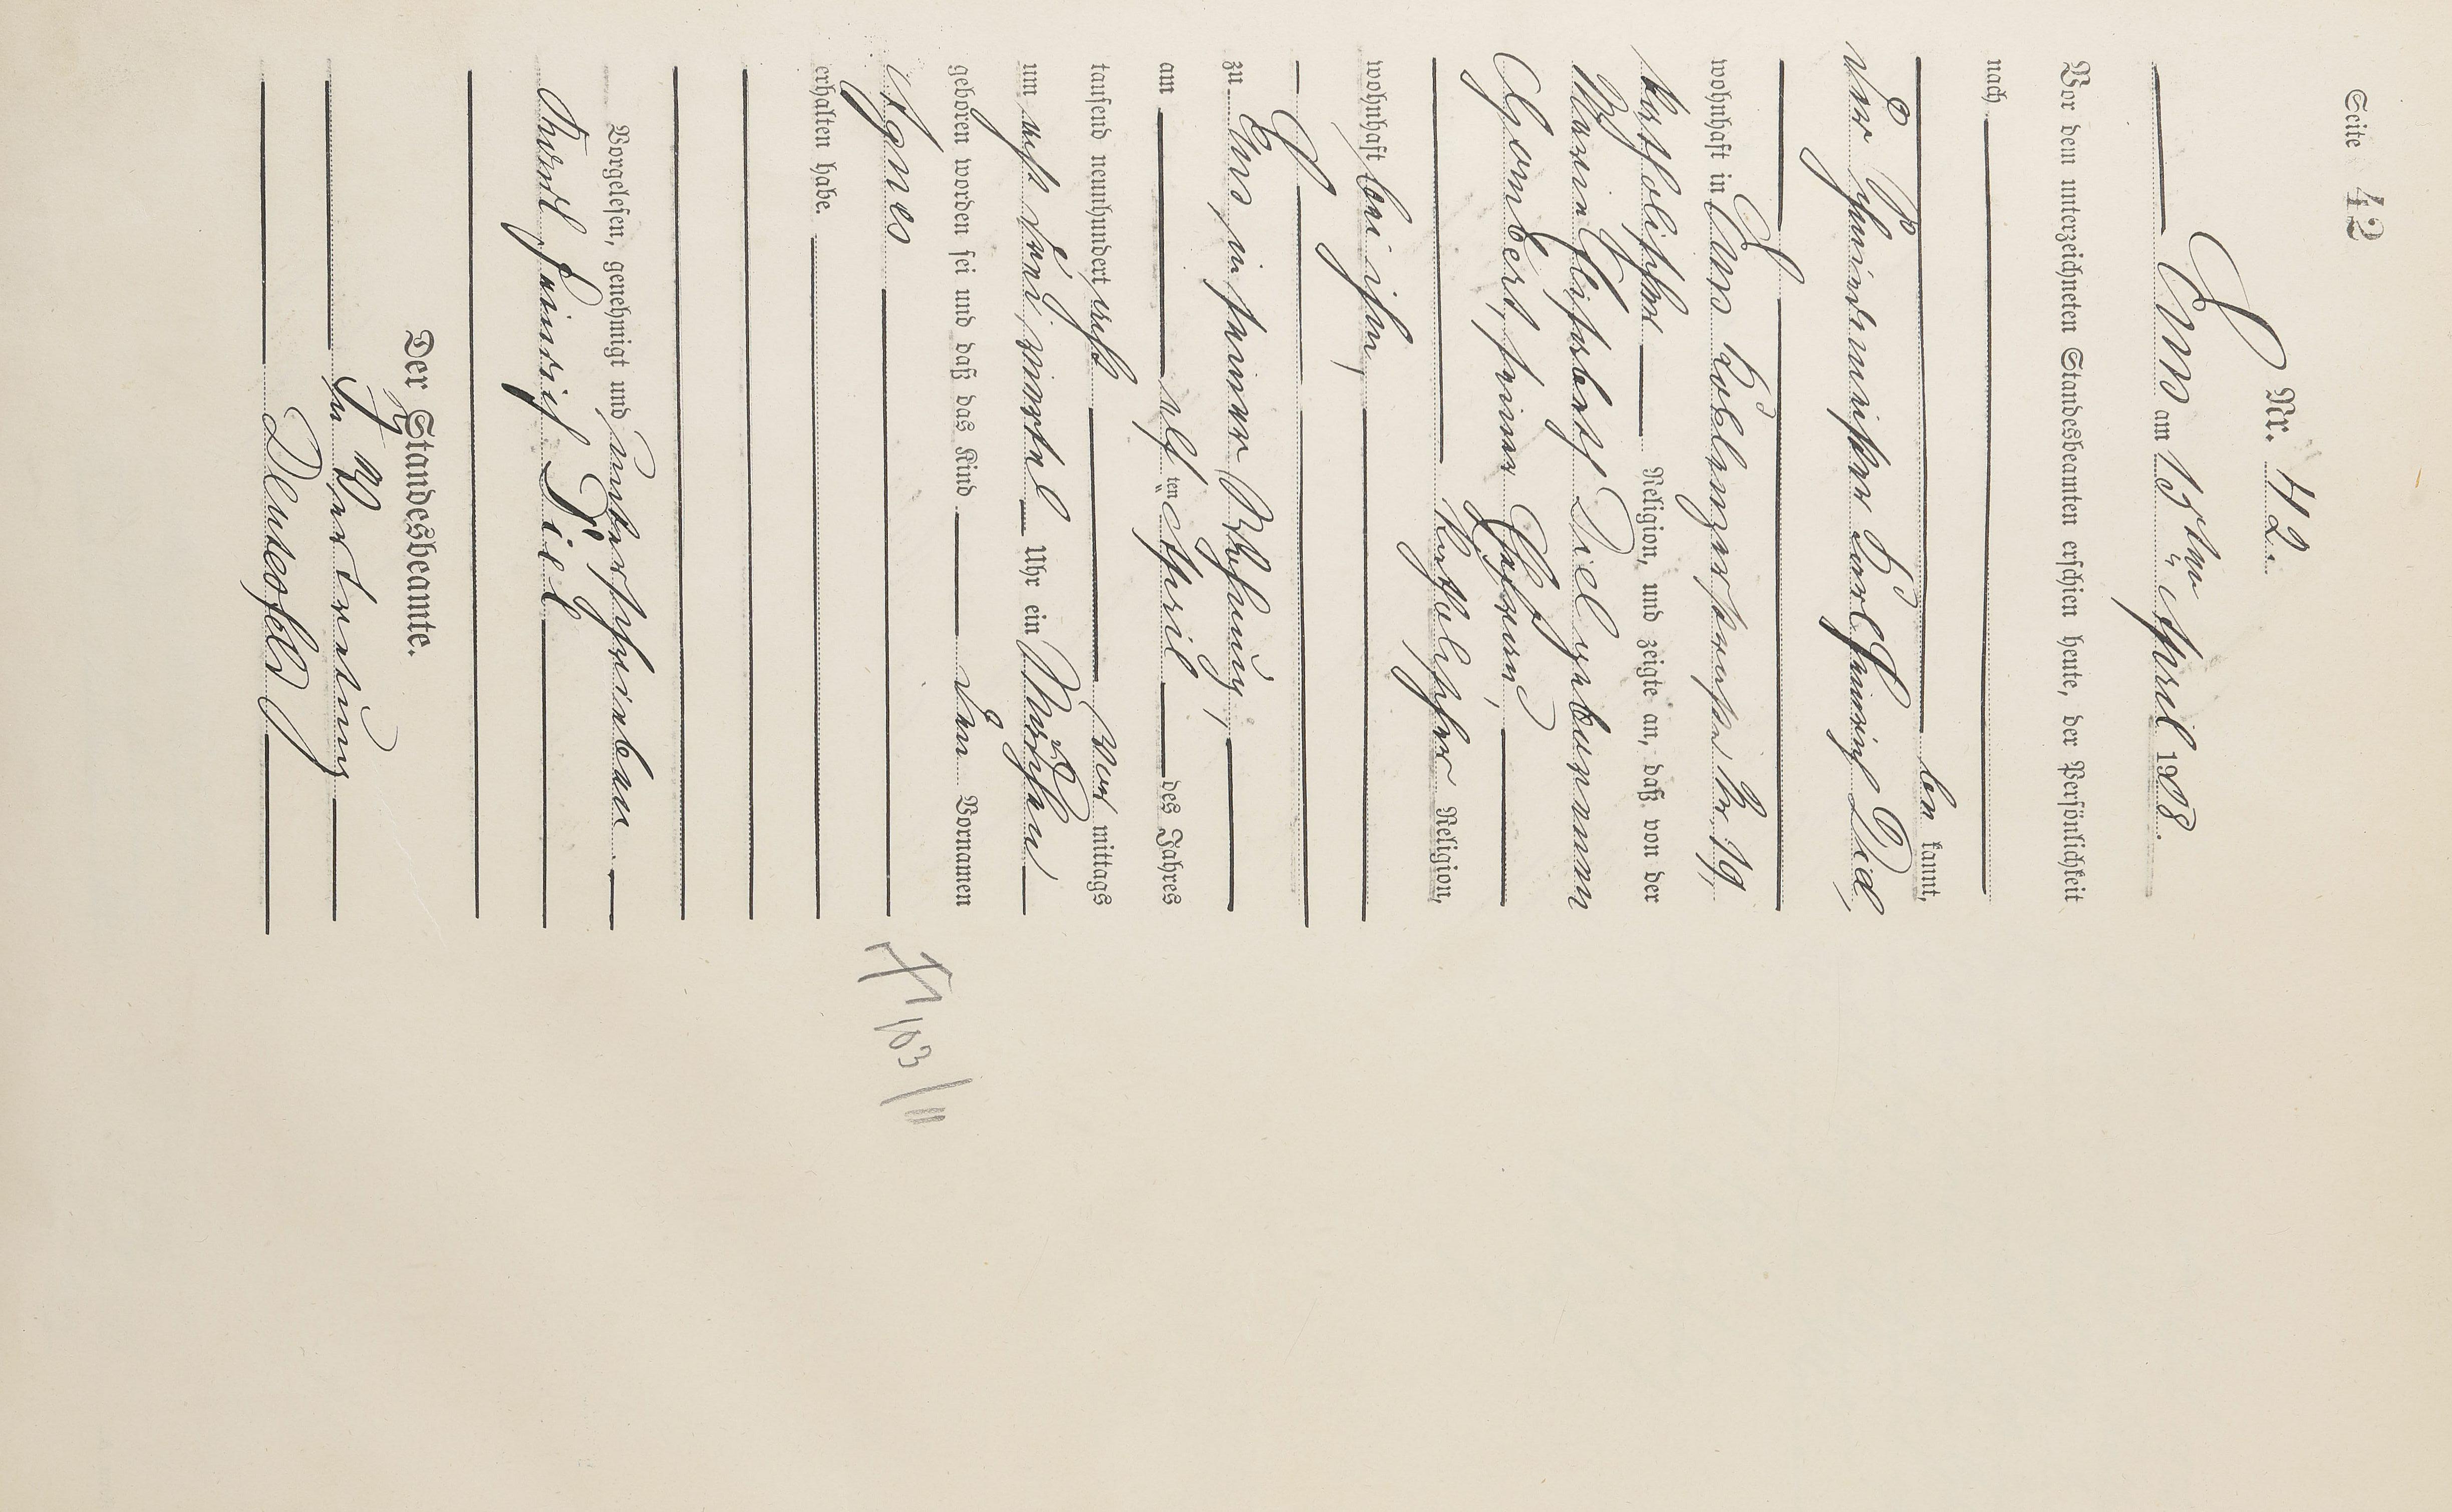 Seite 42
Nr. 42.
Ems am 13ten April 1908.
Vor dem unterzeichneten Standesbeamten erschien heute, der Persönlichkeit
nach
be kannt,
der Schneidermeister Karl Heinrich Diel,
wohnhaft in Ems Koblenzerstraße Nr. 19,
katholischer Religion, und zeigte an, daß von der
Maria Elisabeth Diel geborenen
Gombert, seiner Ehefrau,
katholischer Religion,
wohnhaft bei ihm,
zu Ems, in seiner Wohnung,
am elf ten April des Jahres
tausend neunhundert acht Vor mittags
um acht dreiviertel Uhr ein Mädchen
geboren worden sei und daß das Kind den Vornamen
Agnes
erhalten habe.
Vorgelesen, genehmigt und unterschrieben
Karl Heinrich Diel
Der Standesbeamte.
In Vertretung
103/11